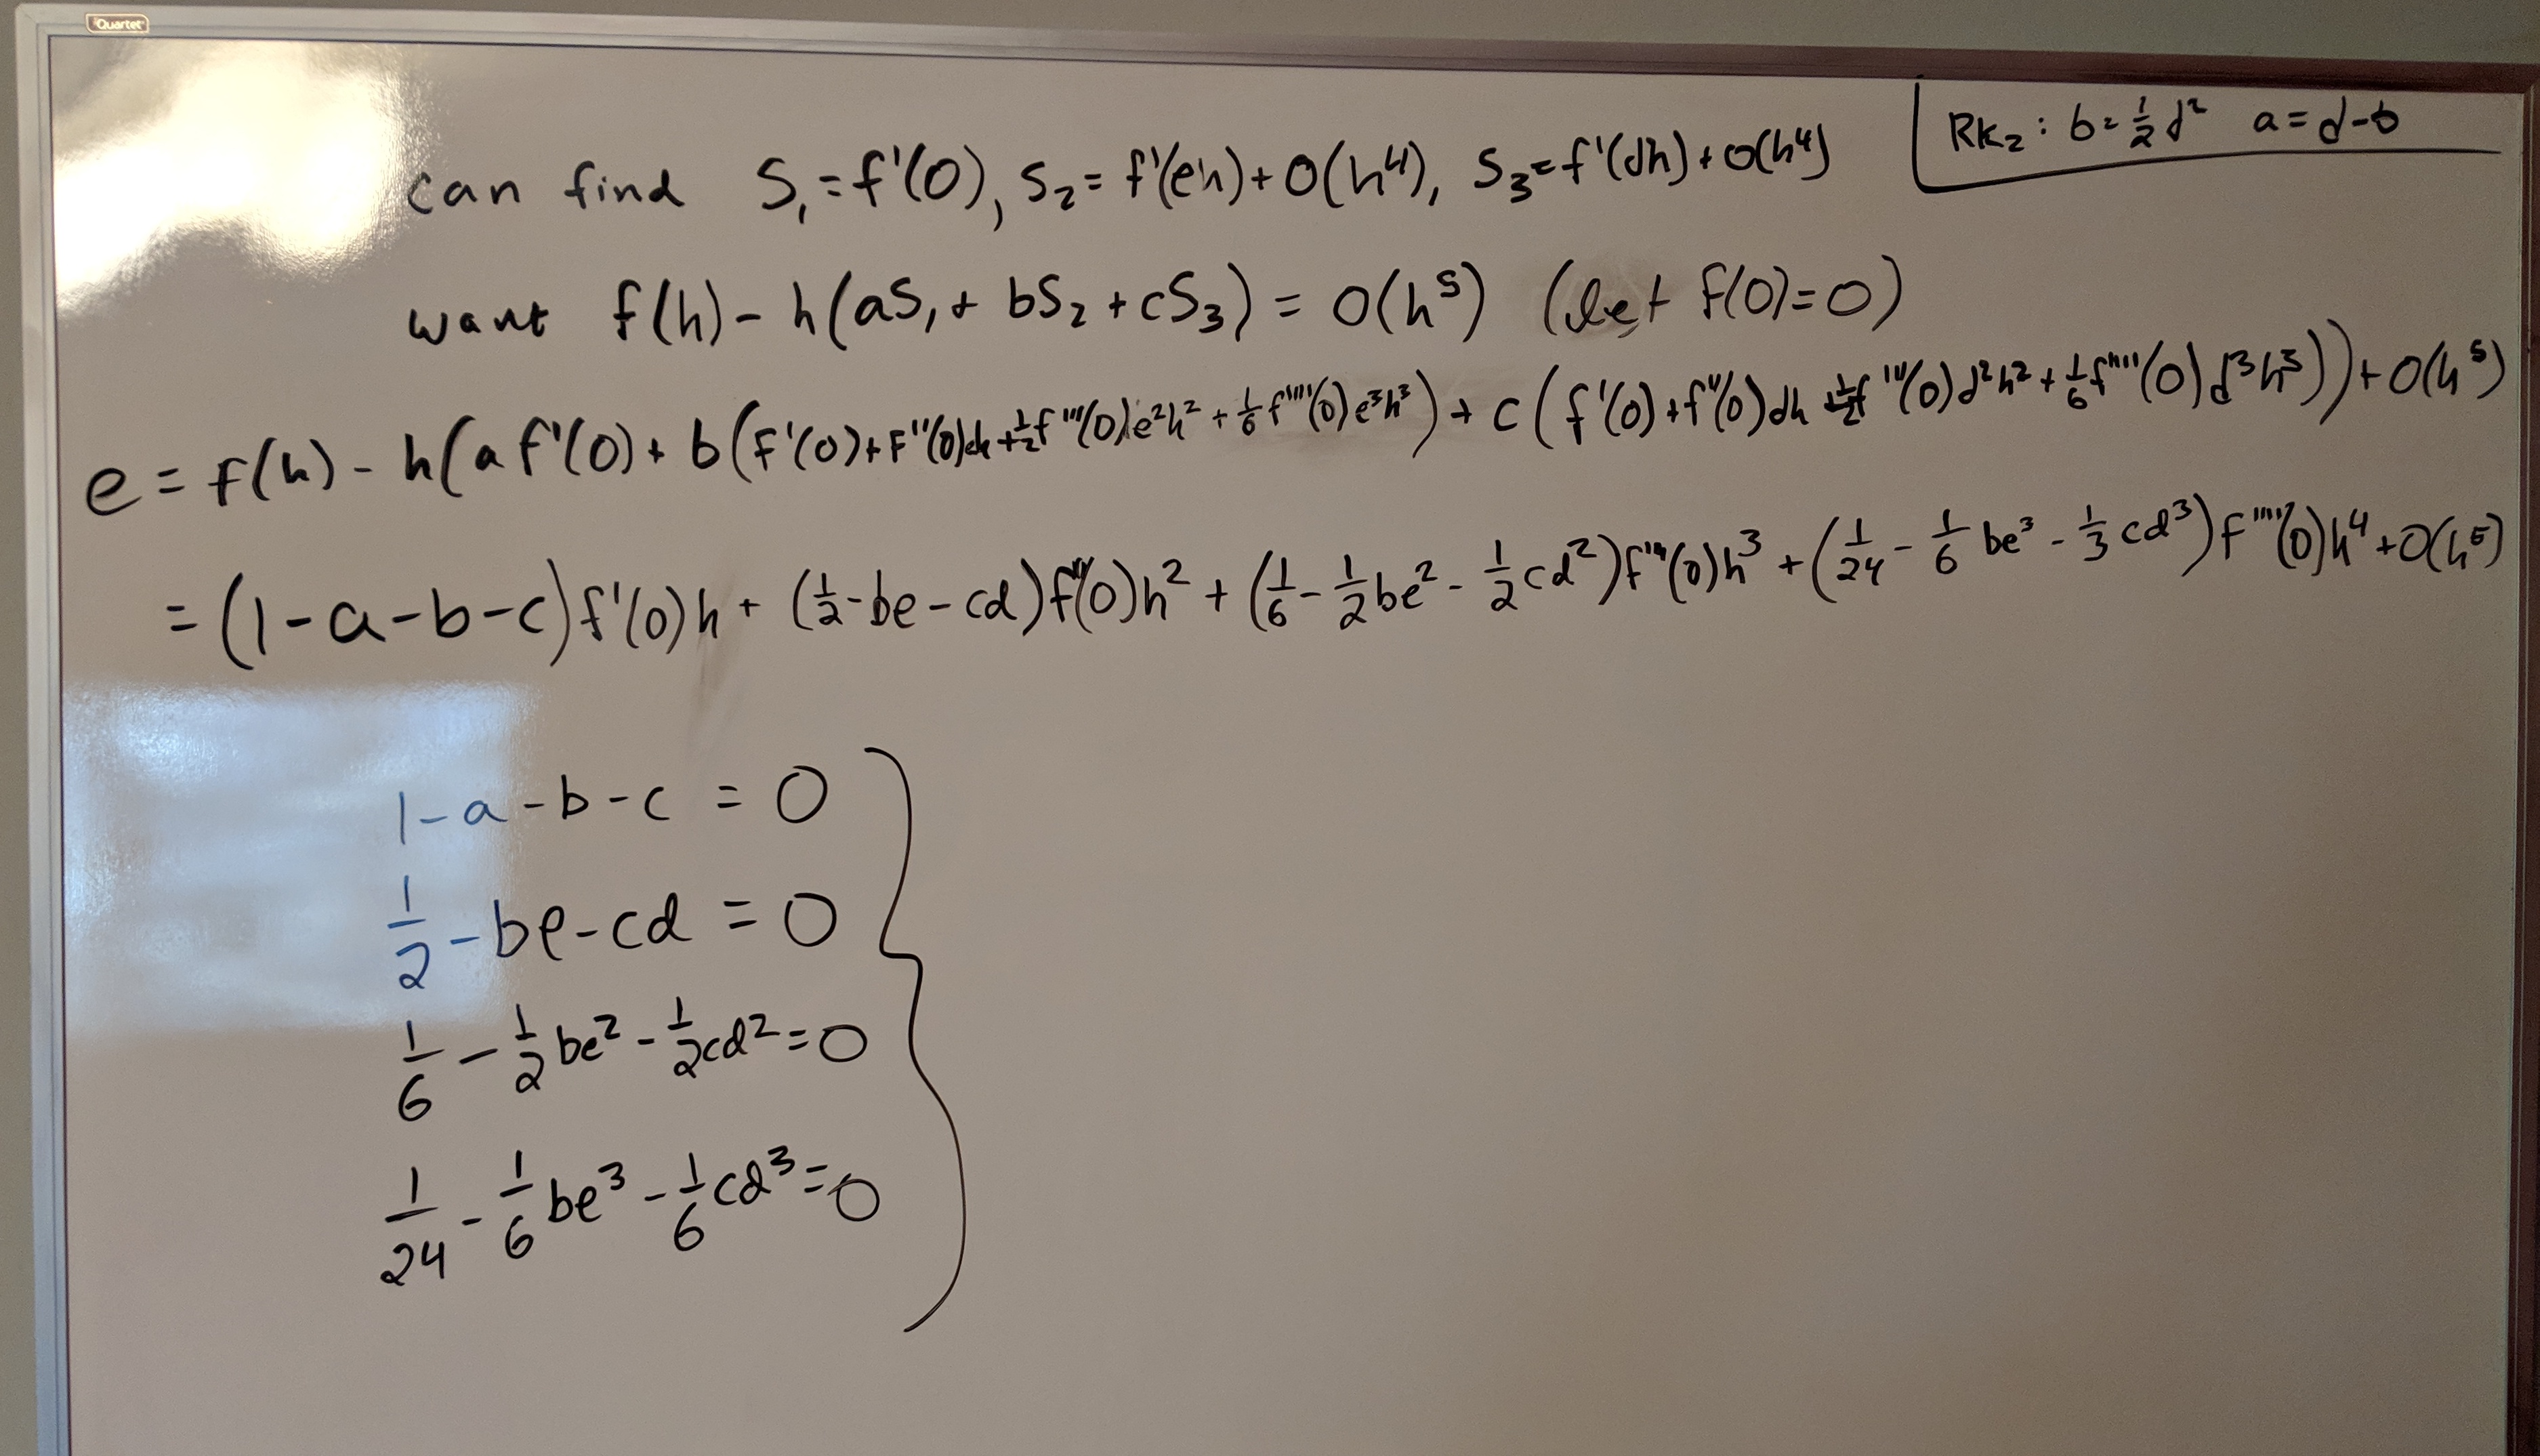 Quartet
RK₂ : b = ½ d² a = d-b
can find S₁ = f'(0), S₂ = f'(eh) + O(h⁴), S₃ = f'(dh) + O(h⁴)
want f(h) - h(aS₁ + bS₂ + cS₃) = O(h⁵) (let f(0)=0)
e = f(h) - h(a f'(0) + b(f'(0) + f''(0)eh + ½f'''(0)e²h² + ⅙f''''(0)e³h³) + c(f'(0) + f''(0)dh + ½f'''(0)d²h² + ⅙f''''(0)d³h³)) + O(h⁵)
= (1-a-b-c)f'(0)h + (½-be-cd)f''(0)h² + (1/6 - 1/2 be² - 1/2 cd²)f'''(0)h³ + (1/24 - 1/6 be³ - 1/3 cd³)f''''(0)h⁴ + O(h⁵)
1-a-b-c = 0
1/2 - be - cd = 0
1/6 - 1/2 be² - 1/2 cd² = 0
1/24 - 1/6 be³ - 1/6 cd³ = 0